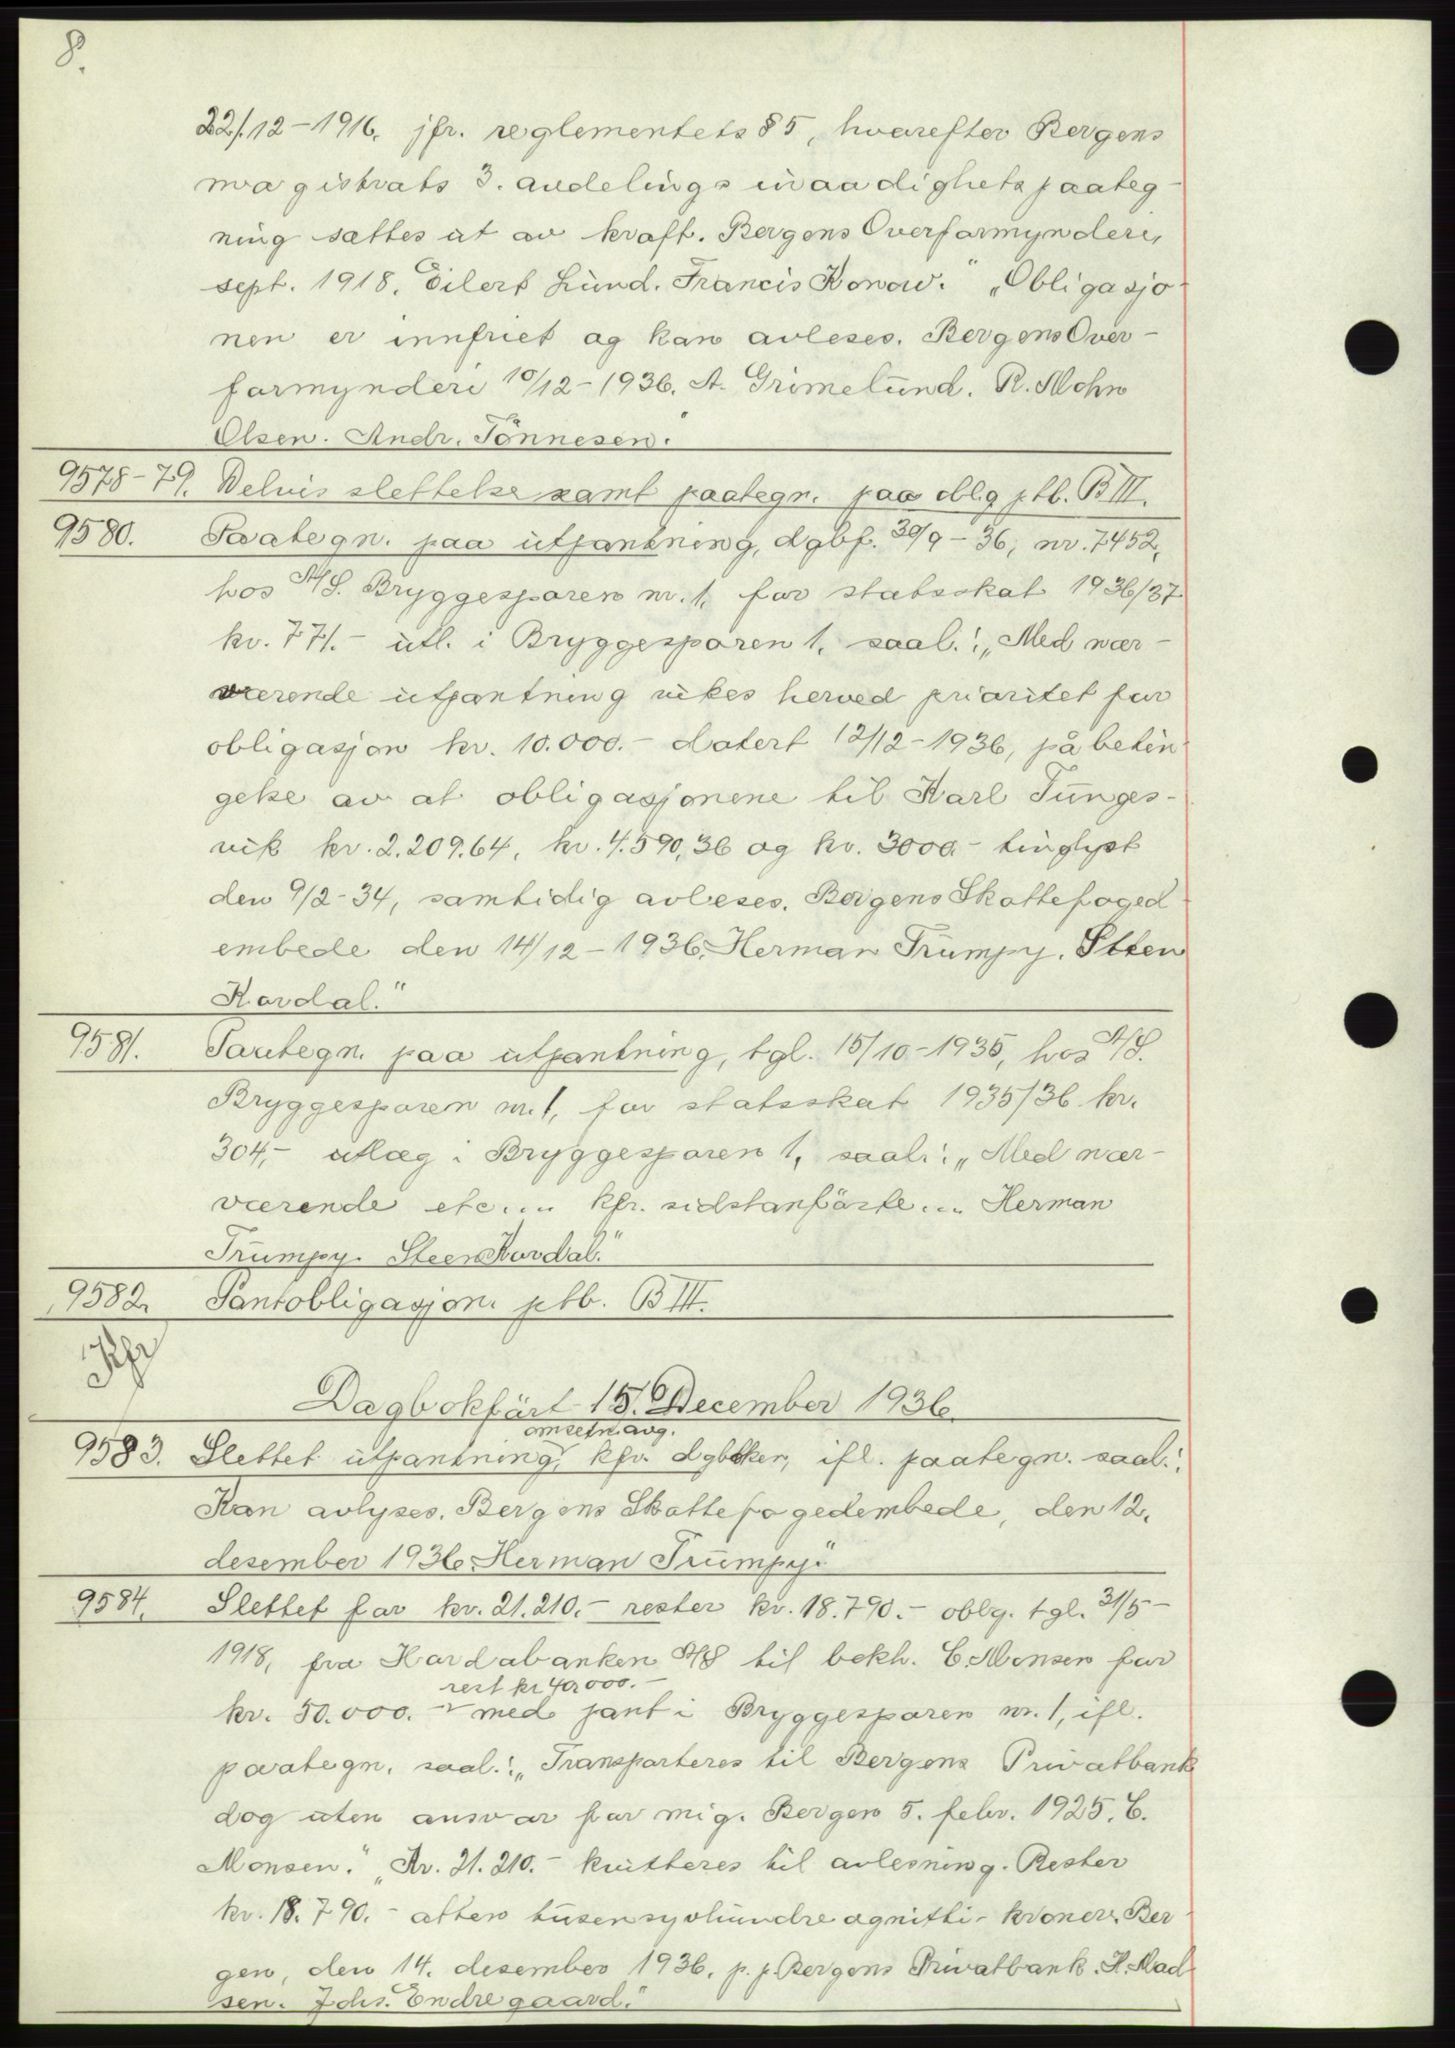 8.
22/12-1916. jfr. reglementets § 5, hvorefter Bergens
magistrats 3. avdelings umyndighetspaateg-
ning sættes ut av kraft. Bergens Overformynderi,
sept. 1918. Eilert Lund. Francis Konow." „Obligasjo-
nen er innfriet og kan avleses. Bergens Over-
formynderi 10/12-1936. A. Grimelund. R. Mohn
Olsen. Andr. Tönnesen."
9578-79. Delvis slettelse samt paategn. paa oblig ptb. B III.
9580. Paategn. paa utpantning, dgbf. 30/9-36, nr. 7452,
hos A/S. Bryggesporen nr. 1, for statsskat 1936/37
kr. 771.- utl. i Bryggesporen 1, saal.: „Med nær-
værende utpantning vikes herved prioritet for
obligasjon kr. 10.000.- datert 12/12-1936, på betin-
gelse av at obligasjonene til Karl Tunges-
vik kr. 2.209.64, kr. 4.590,36 og kr. 3000.- tinglyst
den 9/2-34, samtidig avleses. Bergens Skattefoged
embede den 14/12-1936. Herman Trumpy. Steen
Kordal."
9581. Paategn. paa utpantning, tgl. 15/10-1935, hos A/S.
Bryggesporen nr. 1, for statsskat 1935/36 kr.
304,- utlæg i Bryggesporen 1, saal.: „Med nær-
værende etc... kfr. sidstanførte... Herman
Trumpy. Steen Kordal."
9582. Pantobligasjon ptb. B III.
Kfr
Dagbokført 15. December 1936.
omsetn.avg.
9583. Slettet utpantning, kfr. dgboken, ifl. paategn. saal.:
Kan avlyses. Bergens Skattefogedembede, den 12.
desember 1936. Herman Trumpy."
9584. Slettet for kr. 21.210.- rester kr. 18.790.- oblg. tgl. 31/5-
1918, fra Hordabanken A/S til bekh. C. Monsen for
rest kr 40.000.-
kr. 50.000.- med pant i Bryggesporen nr. 1, ifl.
paategn. saal.: „Transporteres til Bergens Privatbank
dog uten ansvar for mig. Bergen 5. febr. 1925. C.
Monsen." „Kr. 21.210.- kvitteres til avlesning. Rester
kr. 18.790.- atten tusensyvhundreognitti- kroner. Ber-
gen, den 14. desember 1936. p.p. Bergens Privatbank. H. Mad-
sen. Johs. Endregaard."